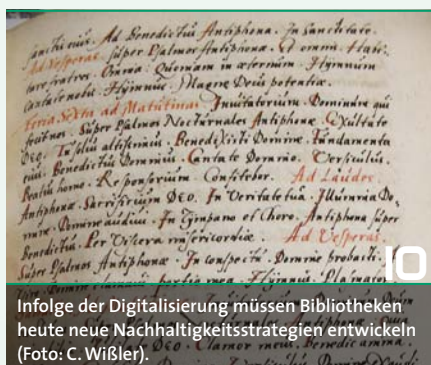 sancti eius. Ad Benedictus Antiphona. In Sanctitate.
Ad Vesperas. Super Psalmos Antiphona. Et omnis
fratres. Omnia. Quoniam in æternum. Hÿmnum
Cantate nobis. Hÿmnus. Magne Deus potentiæ.
Feria Sexta ad Matutinas. Inuitatorium. Dominum qui
fecit nos. Super Psalmos Nocturnales Antiphona. Exultate
DEO. Tu solus altissimus. Benedixisti Domine. Fundamenta
eius. Benedictus Dominus. Cantate Domino. Versiculus.
Beatus homo. Responsorium. Confitebor. Ad Laudes.
Antiphona. Sacrificium DEO. In veritate tua. Illumina Do-
mine. Domine audiui. In Tÿmpano et Choro. Antiphona super
Benedictus. Per Viscera misericordiæ. Ad Vesperas.
Super Psalmos Antiphona. In conspectu. Domine probasti.
portio mea. Hÿmnus. Plasmator
10
Infolge der Digitalisierung müssen Bibliotheken
heute neue Nachhaltigkeitsstrategien entwickeln
(Foto: C. Wißler).
DEO. Clamor meus. Benedic anima.